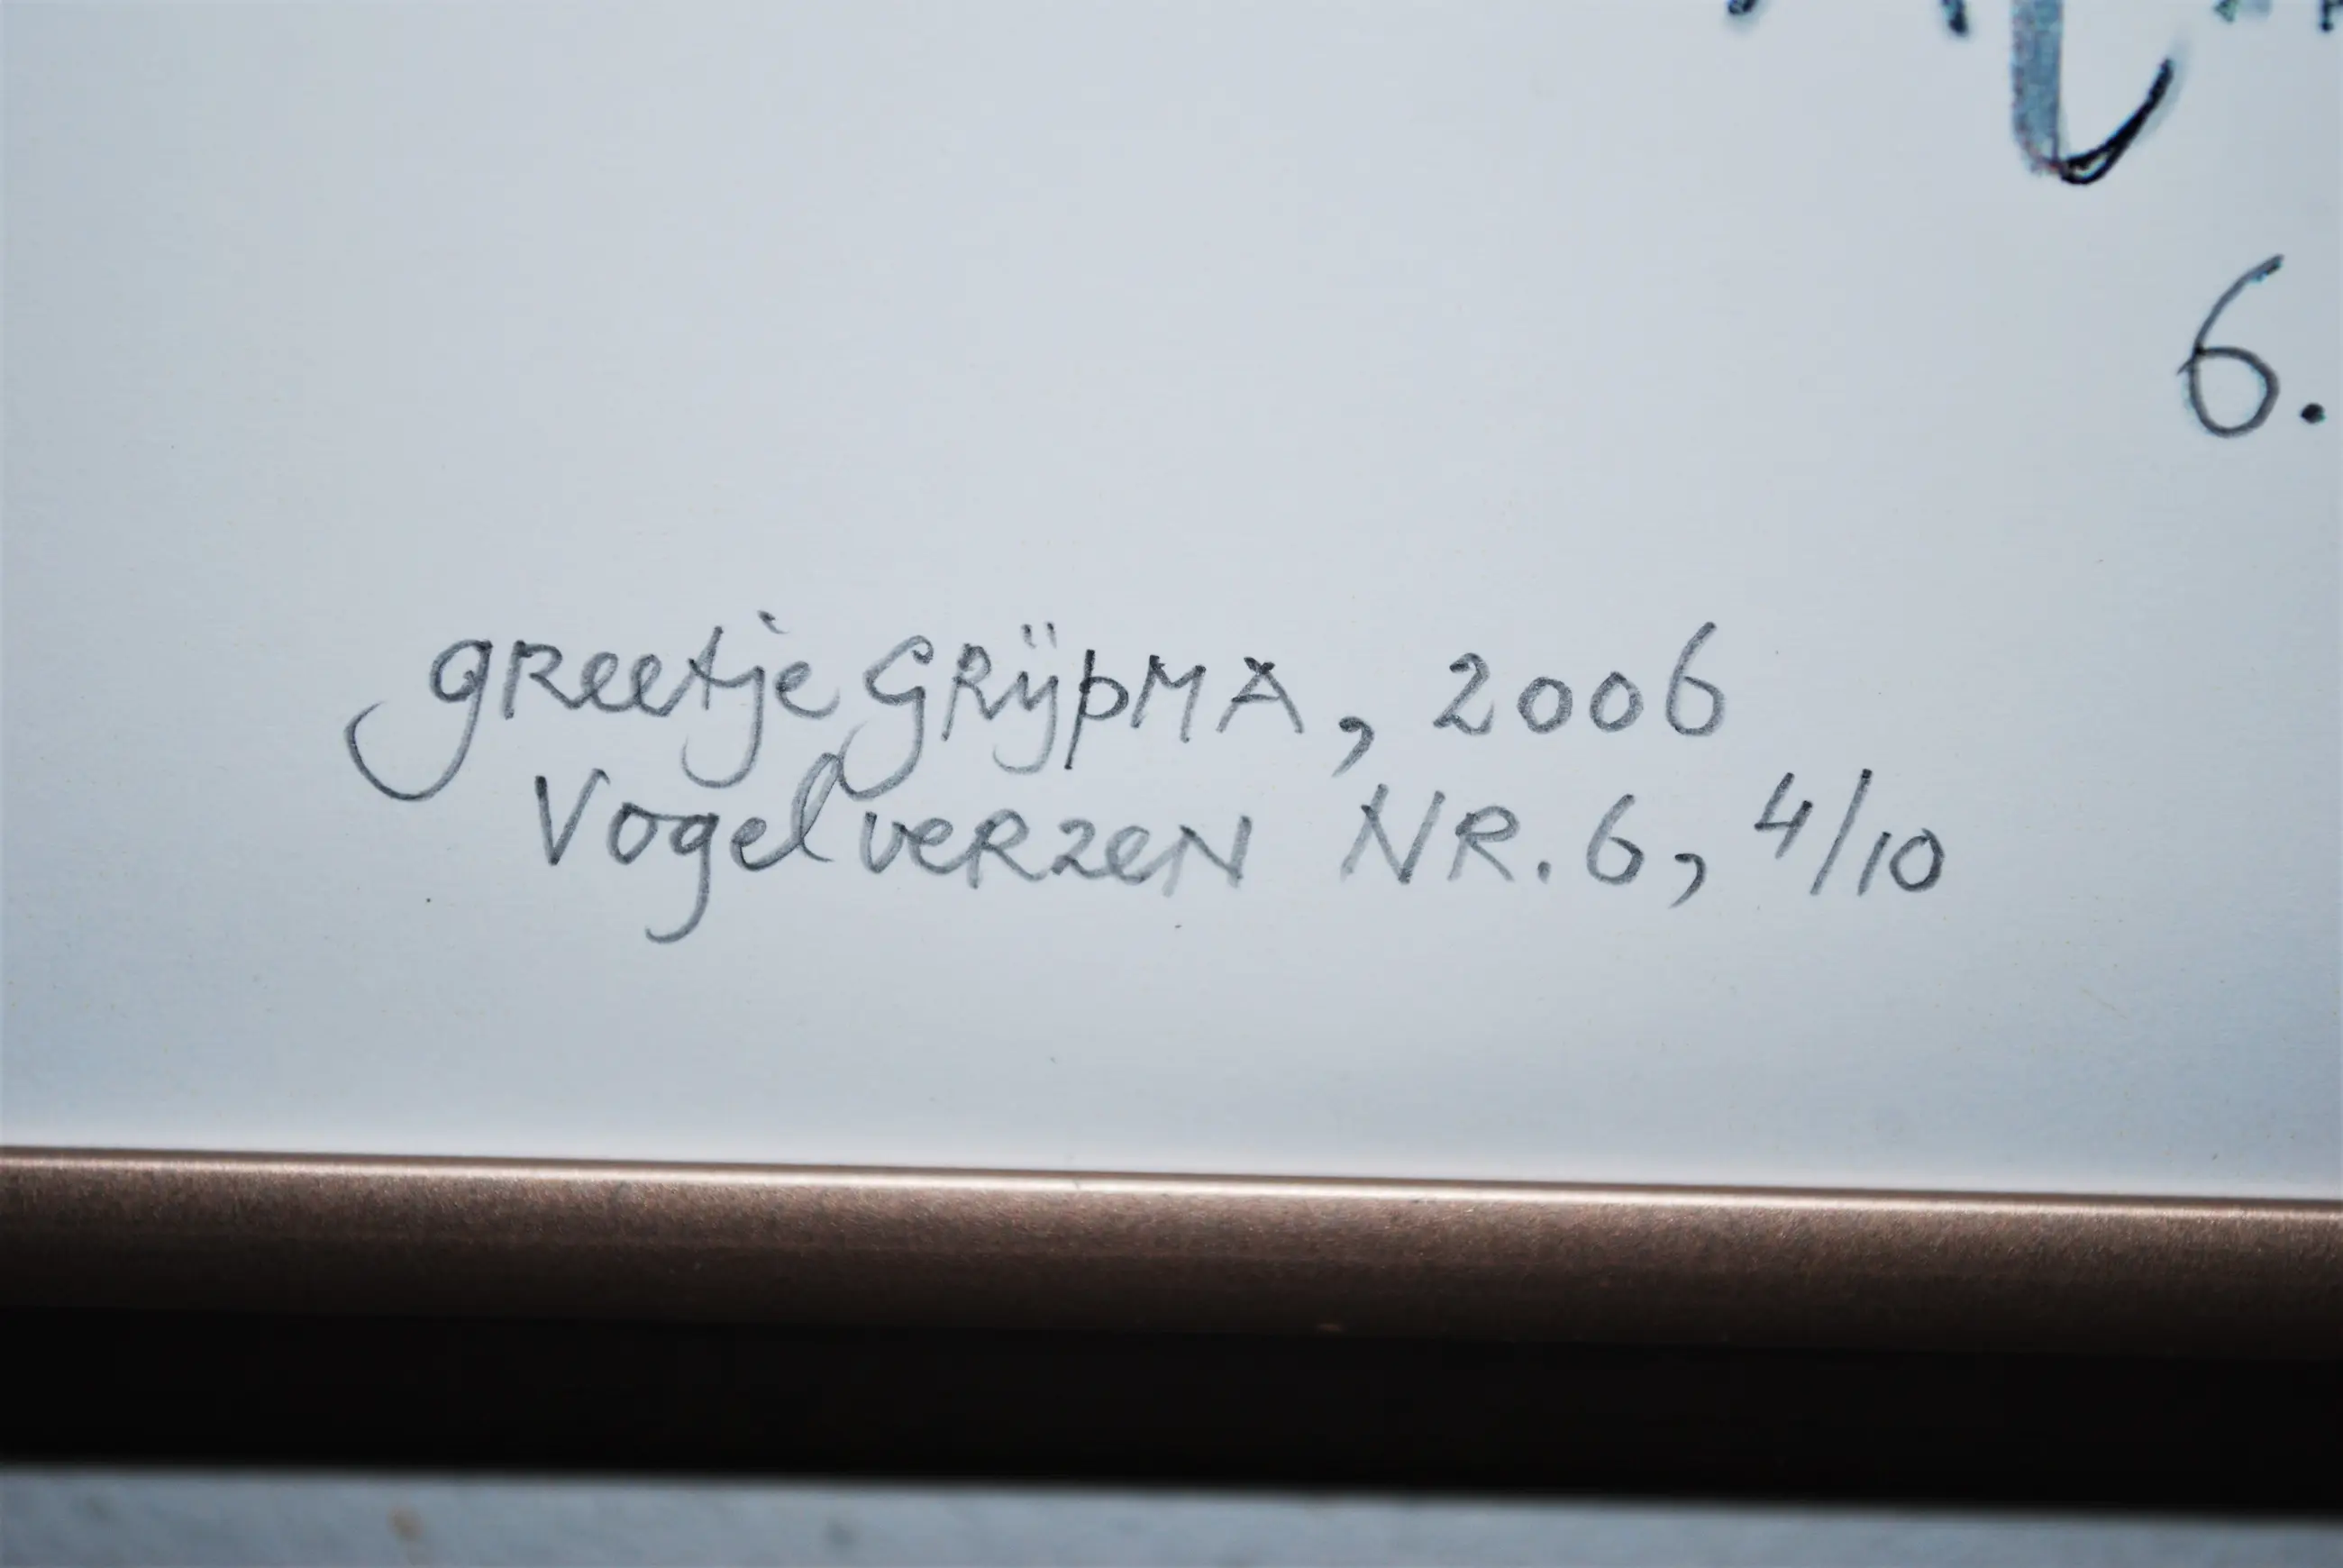 6.
greetje GRÿpMA, 2006
Vogelverzen NR. 6, 4/10